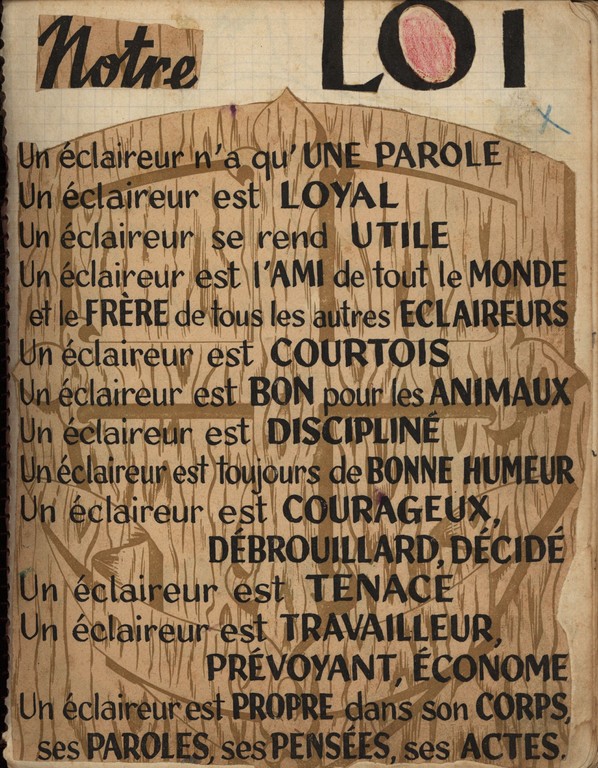 Notre LOI
Un éclaireur n'a qu'UNE PAROLE
Un éclaireur est LOYAL
Un éclaireur se rend UTILE
Un éclaireur est l'AMI de tout le MONDE
et le FRÈRE de tous les autres ECLAIREURS
Un éclaireur est COURTOIS
Un éclaireur est BON pour les ANIMAUX
Un éclaireur est DISCIPLINÉ
Un éclaireur est toujours de BONNE HUMEUR
Un éclaireur est COURAGEUX,
DÉBROUILLARD, DÉCIDÉ
Un éclaireur est TENACE
Un éclaireur est TRAVAILLEUR,
PRÉVOYANT, ÉCONOME
Un éclaireur est PROPRE dans son CORPS,
ses PAROLES, ses PENSÉES, ses ACTES.